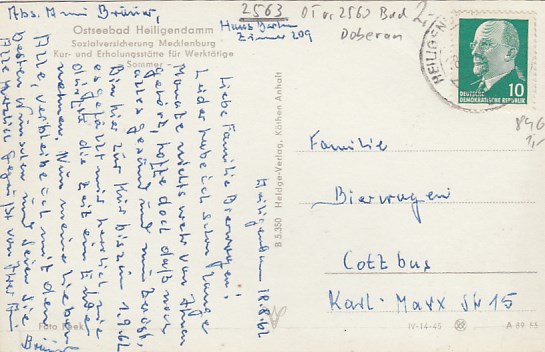 Abs. Anni Bräuer,
Ostseebad Heiligendamm
Sozialversicherung Mecklenburg
Kur- und Erholungsstätte für Werktätige
Sommer
2563
Haus Berlin
Zimmer 209
OT v. 2560 Bad
Doberan
HEILIGEN
10
DEUTSCHE
DEMOKRATISCHE REPUBLIK
Heiligendamm 18.8.62
Liebe Familie Bierwagen!
Leider habe ich schon lange
Monate nichts mehr von Ihnen
gehört, hoffe doch daß noch
alles gesund und munter ist,
Bin hier zur Kur bis zum 1.9.62
es gefällt mir herrlich, nie
dürfte die Zeit ein Ende
nehmen. Nun meine Lieben
Alle, verbleibe ich mit den
besten Wünschen und seien Sie
Alle herzlich gegrüßt von Ihrer Anni
Bräuer
B 5.350 Heldge-Verlag, Köthen Anhalt
Familie
Bierwagen
Cottbus
Karl-Marx Str 15
IV-14-45
A 89 55